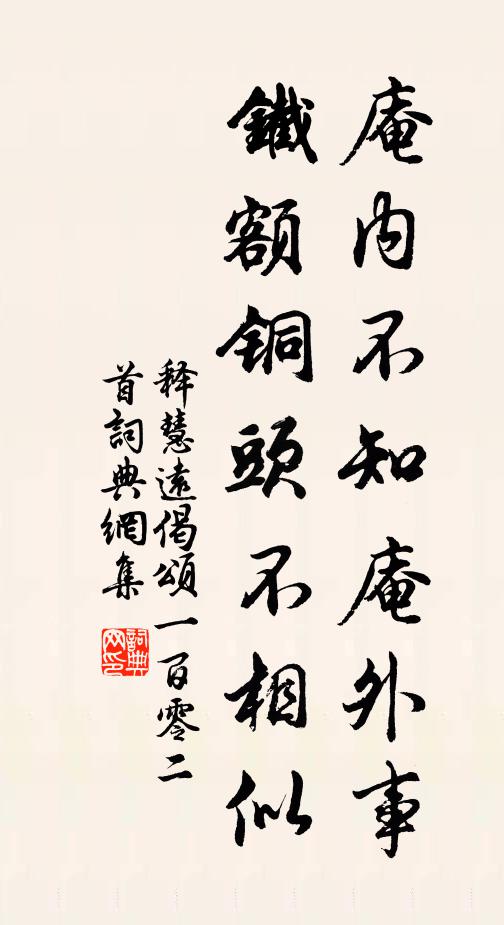 庵内不知庵外事
鐵額銅頭不相似
释慧遠偈頌一百零二
首詞典網集
詞典
网印